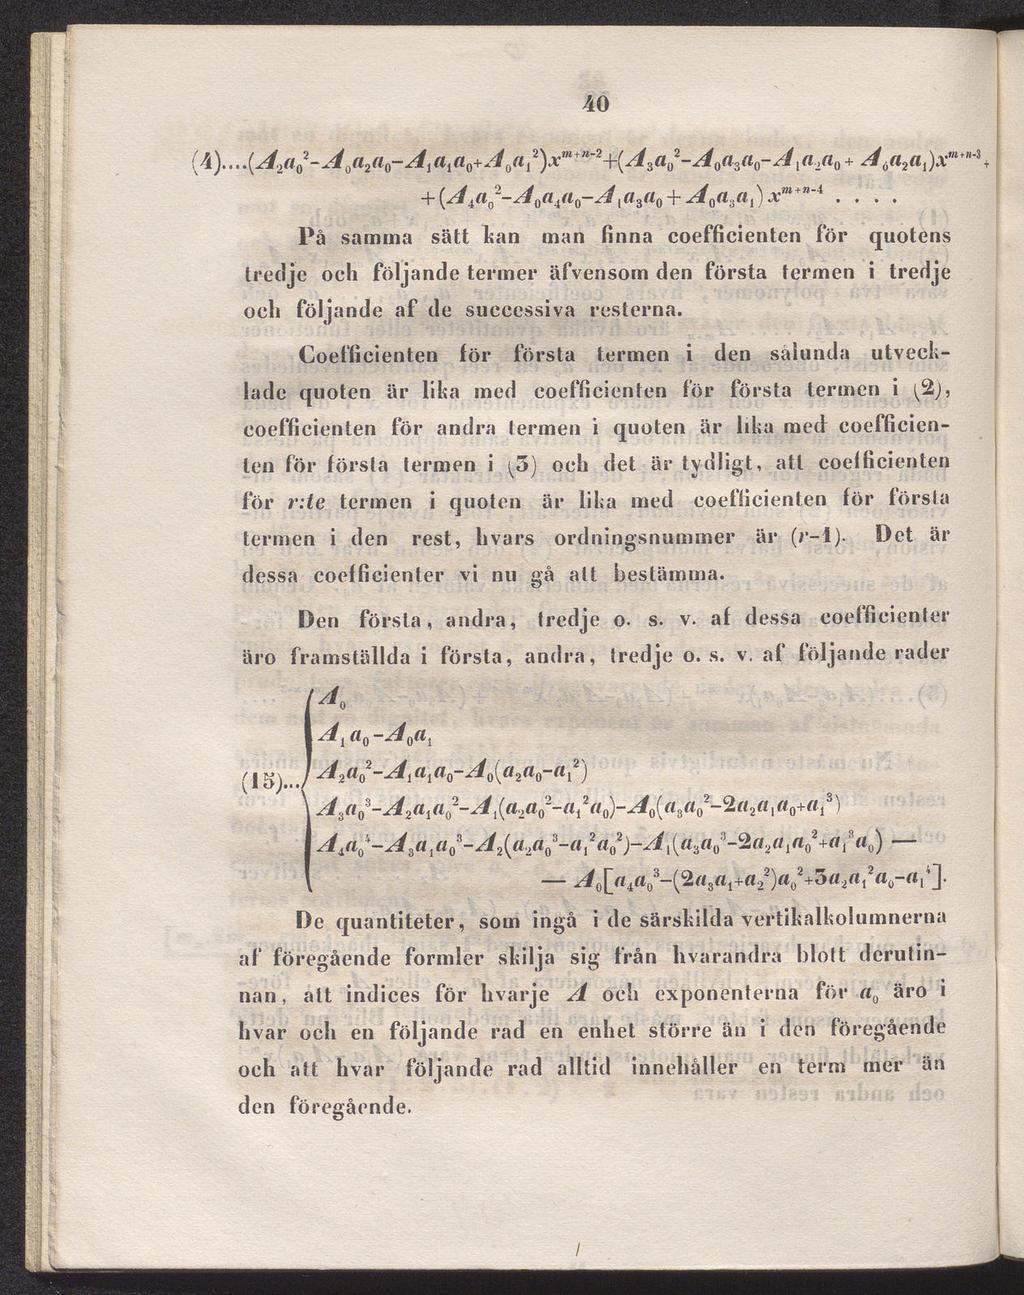 40
(4)....(A₂a₀²-A₀a₂a₀-A₁a₁a₀+A₀a₁²)xᵐ⁺ⁿ⁻²+(A₃a₀²-A₀a₃a₀-A₁a₂a₀+A₀a₂a₁)xᵐ⁺ⁿ⁻³+
+(A₄a₀²-A₀a₄a₀-A₁a₃a₀+A₀a₃a₁)xᵐ⁺ⁿ⁻⁴ . . . .
På samma sätt kan man finna coefficienten för quotens
tredje och följande termer äfvensom den första termen i tredje
och följande af de successiva resterna.
Coefficienten för första termen i den sålunda utveck-
lade quoten är lika med coefficienten för första termen i (2),
coefficienten för andra termen i quoten är lika med coefficien-
ten för första termen i (3) och det är tydligt, att coefficienten
för r:te termen i quoten är lika med coefficienten för första
termen i den rest, hvars ordningsnummer är (r-1). Det är
dessa coefficienter vi nu gå att bestämma.
Den första, andra, tredje o. s. v. af dessa coefficienter
äro framställda i första, andra, tredje o. s. v. af följande rader
A₀
A₁a₀-A₀a₁
(15)... A₂a₀²-A₁a₁a₀-A₀(a₂a₀-a₁²)
A₃a₀³-A₂a₁a₀²-A₁(a₂a₀²-a₁²a₀)-A₀(a₃a₀²-2a₂a₁a₀+a₁³)
A₄a₀⁴-A₃a₁a₀³-A₂(a₂a₀³-a₁²a₀²)-A₁(a₃a₀³-2a₂a₁a₀²+a₁³a₀) —
— A₀[a₄a₀³-(2a₃a₁+a₂²)a₀²+3a₂a₁²a₀-a₁⁴].
De quantiteter, som ingå i de särskilda vertikalkolumnerna
af föregående formler skilja sig från hvarandra blott derutin-
nan, att indices för hvarje A och exponenterna för a₀ äro i
hvar och en följande rad en enhet större än i den föregående
och att hvar följande rad alltid innehåller en term mer än
den föregående.